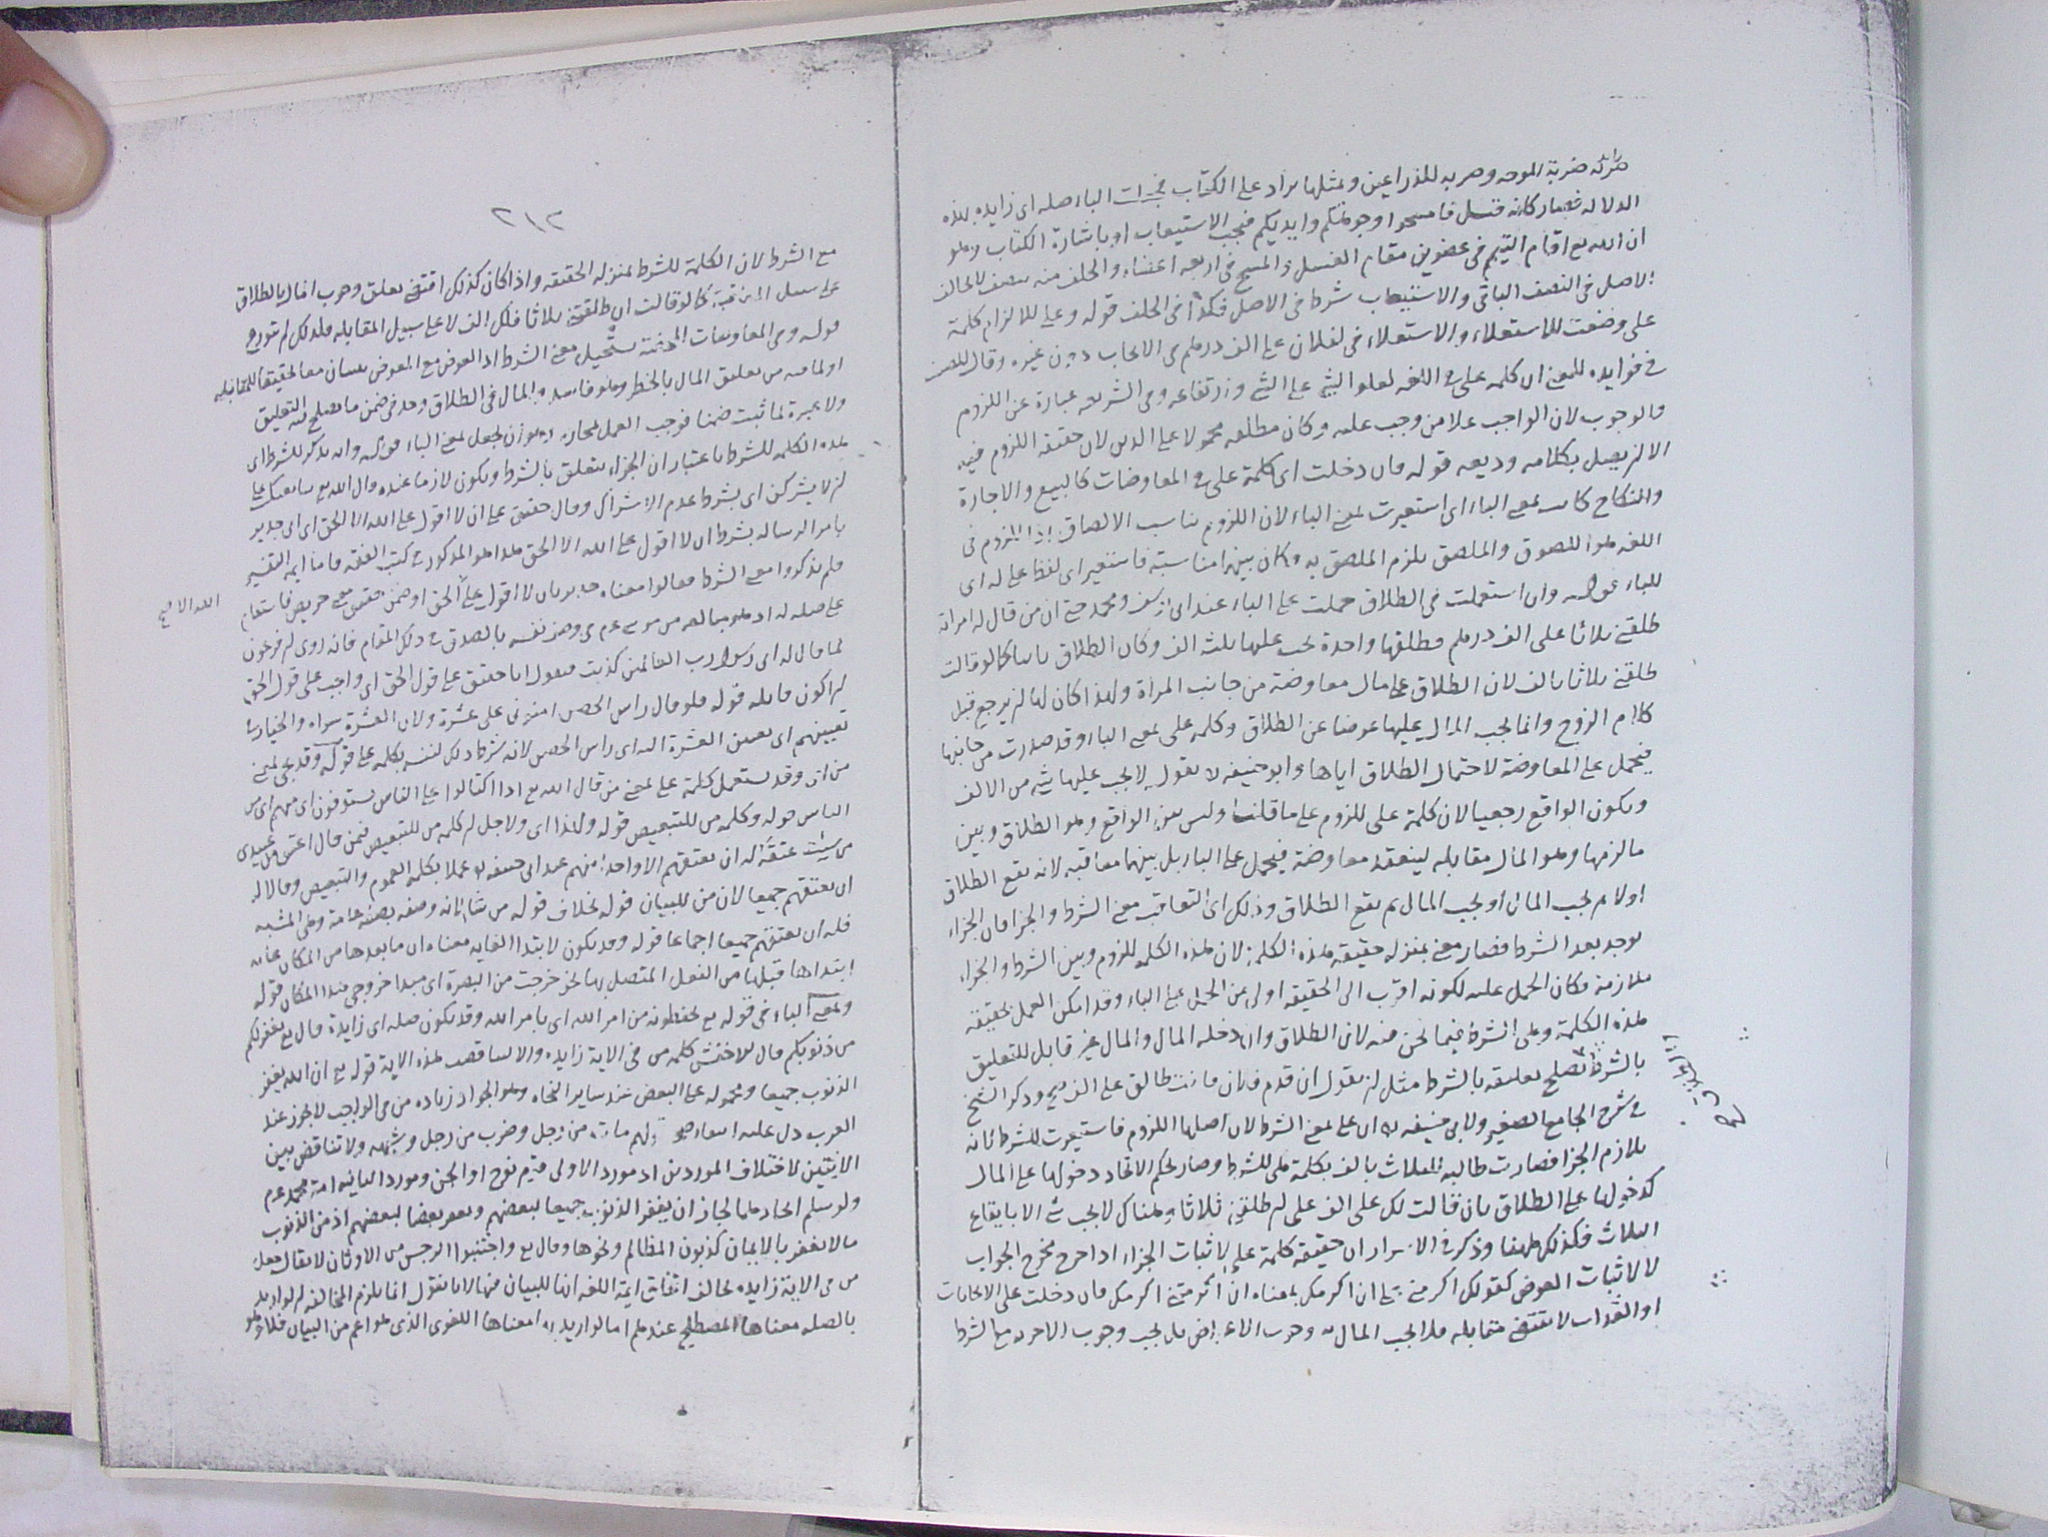 ضربة للوجه وضربه للذراعين وبمثلها يزاد على الكتاب الباء صله اى زايده بهذه
الدلاله فصار كانه قيل فامسحوا وجوهكم وايديكم فيجب الاستيعاب او باشارة الكتاب وهو
ان الله تع اقام التيمم فى عضوين مقام الغسل والمسح فى اربعه اعضاء والخلف منه نصف لا يخالف
الاصل فى النصف الباقى والاستيعاب شرط فى الاصل فكذا فى الخلف قوله وعلى للالزام كلمة
على وضعت للاستعلاء والاستعلاء فى لفلان على الف درهم فى الايجاب دون غيره وقال المصنف
فى فوايده للمغنى ان كلمه على فى اللغه لعلو الشئ على الشئ وارتفاعه وفى الشريعه عبارة عن اللزوم
والوجوب لان الواجب علا من وجب عليه وكان مطلقه محمولا على الدين لان حقيقه اللزوم فيه
الا ان يصل بكلامه وديعه قوله فان دخلت اى كلمة على فى المعاوضات كالبيع والاجارة
والنكاح كانت بمعنى الباء اى استعيرت لمعنى الباء لان اللزوم يناسب الالصاق اذ اللزوم فى
اللغه هو اللصوق والملصق يلزم الملصق به وكان بينهما مناسبة فاستعير اى لفظ على له اى
للباء قوله وان استعملت فى الطلاق حملت على الباء عند ابى يوسف ومحمد حتى ان من قال له امراته
طلقنى ثلاثا على الف درهم فطلقها واحدة يجب عليها ثلث الف وكان الطلاق باينا كما لو قالت
طلقنى ثلاثا بالف لان الطلاق على مال معاوضة من جانب المراة ولهذا كان لها ان يرجع قبل
كلام الزوج وانما يجب المال عليها عوضا عن الطلاق وكلمه على بمعنى الباء وقد صدرت من جانبها
فيحمل على المعاوضة لاحتمال الطلاق اياها وابو حنيفه لا يقول به لا يجب عليها شئ من الالف
ويكون الواقع رجعيا لان كلمة على للزوم على ما قلنا وليس بين الواقع وهو الطلاق وبين
ما لزمها وهو المال مقابله لينعقد معاوضة فيحمل على الباء بل بينهما معاقبه لانه يقع الطلاق
اولا ثم يجب المال او يجب المال ثم يقع الطلاق وذلك اى التعاقب معنى الشرط والجزا فان الجزاء
يوجد بعد الشرط فصار معنى بمنزله حقيقه هذه الكلمة لان هذه الكلمه للزوم وبين الشرط والجزاء
ملازمة فكان الحمل عليه لكونه اقرب الى الحقيقه اولى من الحمل على الباء وقد امكن العمل بحقيقه
هذه الكلمة وهى الشرط فيما نحن فيه لان الطلاق وان دخله المال والمال غير قابل للتعليق
بالشرط يصلح تعليقه بالشرط مثل ان يقول ان قدم فلان فانت طالق على الف وذكر الشيخ
فى شرح الجامع الصغير ولابى حنيفه ان على بمعنى الشرط لان اصلها اللزوم فاستعيرت للشرط لانه
يلازم الجزا فصارت طالبه الثلاث بالف بكلمة هى للشرط وصار لحكم الاتحاد دخولها على المال
كدخولها على الطلاق بان قالت لك على الف على ان طلقنى ثلاثا وهناك لا يجب شئ الا بايقاع
الثلاث فكذلك ههنا وذكر فى الاسرار ان حقيقه كلمة على لاثبات الجزاء اذا خرج مخرج الجواب
لا لاثبات العوض كقولك اكرمنى على ان اكرمك بمعناه ان اكرمتنى اكرمك فان دخلت على الايجابات
لا تقتضى مقابله فلا يجب المال بل يجب وجوب الاجزيه مع الشرط
٢١٢
مع الشرط لان الكلمة للشرط بمنزله الحقيقه واذا كان كذلك اقتضى تعلق وجوب المال بالطلاق
على سبيل المعاقبة كما لو قالت ان طلقتنى ثلاثا فلك الف لا على سبيل المقابله فلذلك لم يتوزع
قوله وفى المعاوضات المحضة يستحيل معنى الشرط اذ العوض مع المعوض يثبتان معا تحقيقا للمقابله
او لما فيه من تعليق المال بالخطر وهو فاسد والمال فى الطلاق وجد فى ضمن ما يصلح للتعليق
ولا عبرة لما ثبت ضمنا فوجب العمل بمجازه وهو ان يجعل بمعنى الباء قوله وان يذكر للشرط اى
هذه الكلمه للشرط باعتبار ان الجزاء يتعلق بالشرط ويكون لازما عنده قال الله تع يبايعنك على
ان لا يشركن اى بشرط عدم الاشراك وقال حقيق على ان لا اقول على الله الا الحق اى جدير
بامر الرساله بشرط ان لا اقول على الله الا الحق هذا هو المذكور فى كتب الفقه فاما ايمه التفسير
فلم يذكروا معنى الشرط فقالوا معناه جدير بان لا اقول على الحق او ضمن حقيق معنى حريص فاستعمل
على صله له
لما قال له انى رسول رب العالمين كذبت فيقول انا حقيق على قول الحق اى واجب على قول الحق
ان اكون قايله قوله فلو قال راس الحصن امنونى على عشرة ولان العشرة سواه والخيار
تعيينهم اى تعيين العشرة اليه اى راس الحصن لانه شرط ذلك لنفسه بكلمه على قوله وقد يجئ بمعنى
من اى وقد يستعمل كلمة على بمعنى من قال الله تع اذا اكتالوا على الناس يستوفون اى منهم اى من
الناس قوله وكلمه من للتبعيض قوله ولهذا اى ولاجل ان كلمه من للتبعيض فيمن قال اعتق من عبيدى
من شئت عتقه له ان يعتقهم الا واحدا منهم عند ابى حنيفه عملا بكلمة العموم والتبعيض وقالا له
ان يعتقهم جميعا لان من للبيان قوله بخلاف قوله من شاء لانه وصفه بصفه عامة وهى المشيه
فله ان يعتقهم جميعا اجماعا قوله وقد يكون لابتدا الغايه معناه ان ما بعدها من المكان غايه
ابتداها قبلها من الفعل المتصل بها نحو خرجت من البصرة اى مبدا خروجى هذا المكان قوله
وبمعنى الباء فى قوله تع يحفظونه من امر الله اى بامر الله وقد يكون صله اى زايدة قال تع يغفر لكم
من ذنوبكم قال الاخفش كلمه من فى الاية زايده والا لناقضت هذه الاية قوله تع ان الله يغفر
الذنوب جميعا ومحموله على البعض عند ساير النحاه وهو الجواد زياده من فى الواجب لا يجوز عند
العرب دل عليه قولهم مات من رجل وضرب من رجل وشبهه ولا تناقض بين
الايتين لاختلاف الموردين اذ مورد الاولى قوم نوح او الجن ومورد الثانيه امة محمد عم
ولو سلم اتحادهما لجاز ان يغفر الذنوب جميعا لبعضهم ويغفر بعضا لبعضهم اذ من الذنوب
ما لا يغفر بالايمان كذنوب المظالم ونحوها وقال تع واجتنبوا الرجس من الاوثان لا يقال جعل
من فى الاية زايده يخالف اتفاق ايمة اللغه انها للبيان فيها لانا نقول انما يلزم المخالفه ان لو اريد
بالصله معناها المصطلح عندهم اما لو اريد به معناها اللغوى الذى هو اعم من البيان فلا وهو